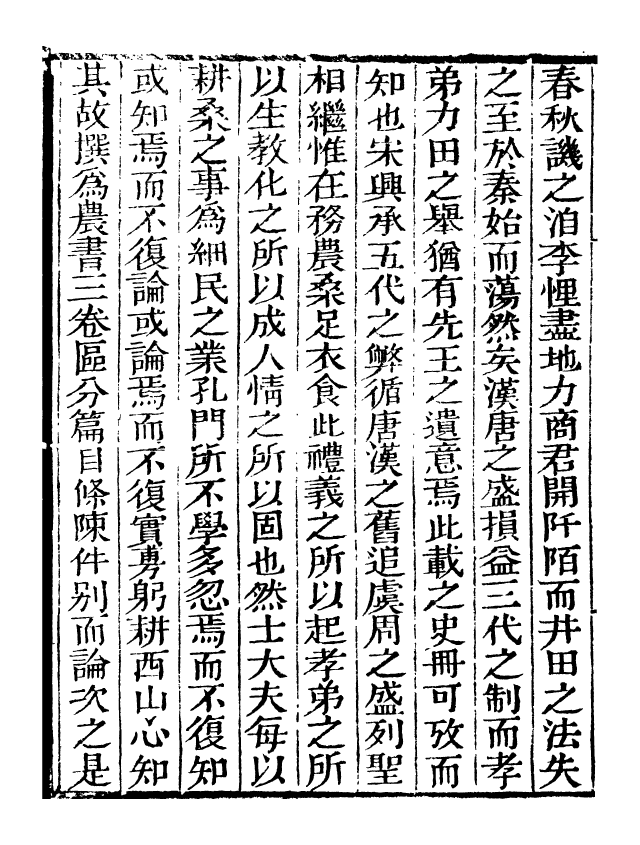 春秋譏之洎李悝盡地力商君開阡陌而井田之法失
之至於秦始而蕩然矣漢唐之盛損益三代之制而孝
弟力田之舉猶有先王之遺意焉此載之史冊可攷而
知也宋興承五代之弊循唐漢之舊追虞周之盛列聖
相繼惟在務農桑足衣食此禮義之所以起孝弟之所
以生教化之所以成人情之所以固也然士大夫每以
耕桑之事為細民之業孔門所不學多忽焉而不復知
或知焉而不復論或論焉而不復實旉躬耕西山心知
其故撰為農書三卷區分篇目條陳件別而論次之是